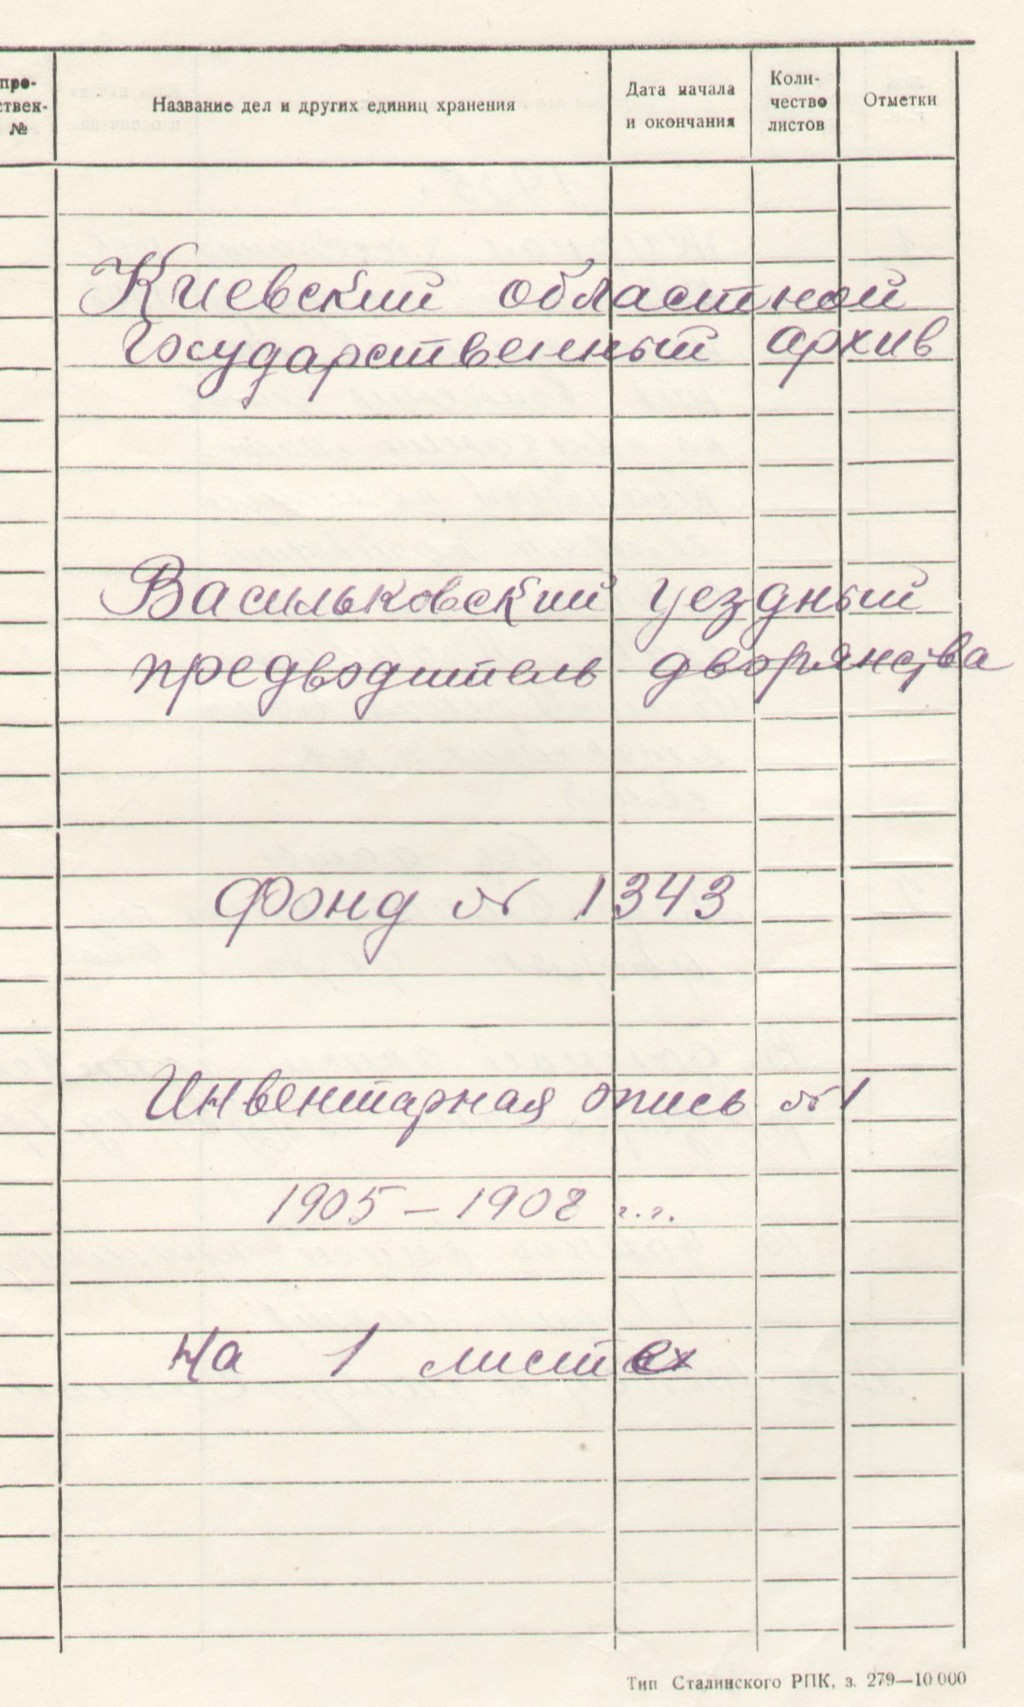 пре-
ствен-
№
Название дел и других единиц хранения
Дата начала
и окончания
Коли-
чество
листов
Отметки
Киевский областной
государственный архив
Васильковский уездный
предводитель дворянства
Фонд № 1343
Инвентарная опись № 1
1905 – 1908 г.г.
На 1 листе
Тип Сталинского РПК, з. 279—10 000